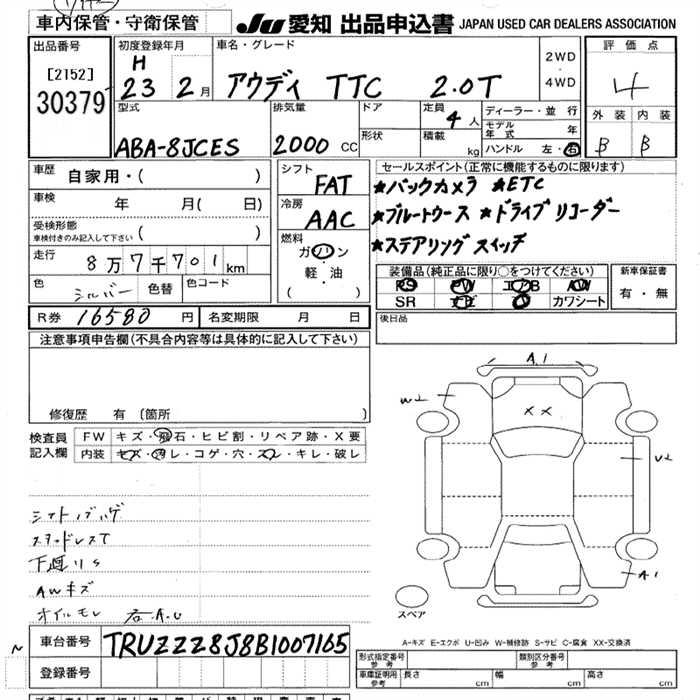 車内保管・守衛保管
JU 愛知 出品申込書 JAPAN USED CAR DEALERS ASSOCIATION
出品番号
[2152]
30379
初度登録年月
H
23 2月
車名・グレード
アウディ TTC 2.0T
2WD
・
4WD
評価点
4
外装 内装
B B
型式
ABA-8JCES
排気量
2000 CC
ドア
形状
定員
4人
積載
kg
ディーラー・並行
モデル年式 年
ハンドル 左・右
車歴
自家用・( )
車検
年 月( 日)
受検形態
車検付きのみ記入して下さい ( )
走行
8万7千701km
色
シルバー
色替
色コード
シフト
FAT
冷房
AAC
燃料
ガソリン
・
軽・油
( )
セールスポイント(正常に機能するものに限ります)
★バックカメラ ★ETC
★ブルートゥース ★ドライブレコーダー
★ステアリングスイッチ
装備品(純正品に限り○をつけてください)
PS PW エアB AW
SR ナビ 革 カワシート
新車保証書
有・無
R券 16580 円
名変期限 月 日
後日品
注意事項申告欄(不具合内容等は具体的に記入して下さい)
修復歴 有 (箇所
検査員
記入欄
FW キズ・飛石・ヒビ割・リペア跡・X要
内装 キズ・汚レ・コゲ・穴・スレ・キレ・破レ
シフトノブハゲ
スタッドレスT
下廻りS
AWキズ
オイルモレ 右A.U
A1
W2
XX
U2
A1
スペア
A-キズ E-エクボ U-凹み W-補修跡 S-サビ C-腐食 XX-交換済
N
車台番号 TRUZZZ8J8B1007165
登録番号
形式指定番号
参考
類別区分番号
参考
車庫証明用
参考
長さ cm
幅 cm
高さ cm